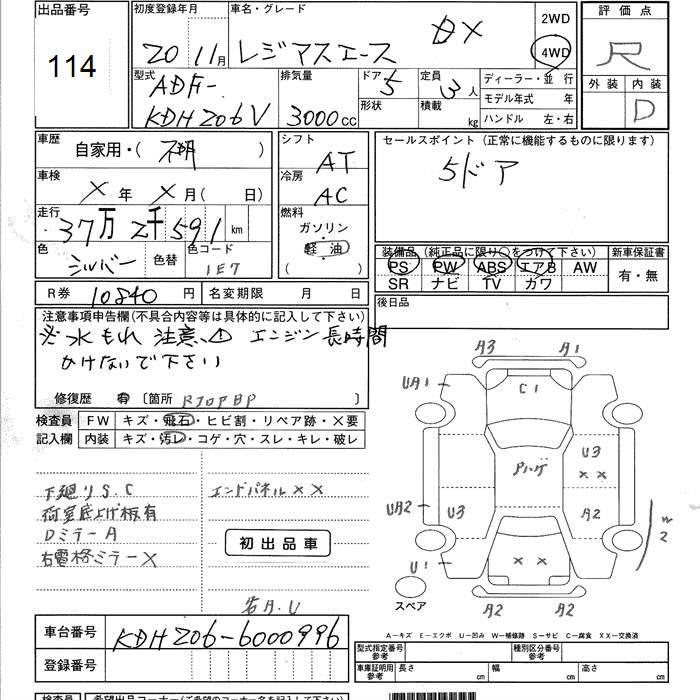 出品番号 初度登録年月 車名・グレード 2WD 評価点
114 20 11月 レジアスエース DX 4WD R
型式 排気量 ドア 定員 ディーラー・並 行 外装 内装
ADF- 5 3人 モデル年式 年 D
KDH206V 3000cc 形状 積載 kg ハンドル 左・右
車歴 シフト セールスポイント (正常に機能するものに限ります)
自家用・( 不明 ) AT 5ドア
車検 冷房
X 年 X 月( 日) AC
走行 燃料
37万2千591 km ガソリン
色 色替 色コード 軽油 装備品 (純正品に限り○をつけて下さい) 新車保証書
シルバー 1E7 ( ) PS PW ABS エアB AW 有・無
R券 10840 円 名変期限 月 日 SR ナビ TV カワ
後日品
注意事項申告欄(不具合箇所等は具体的に記入して下さい)
水もれ 注意 ⚠ エンジン長時間
かけないで下さい
修復歴 有 〔箇所
検査員 FW キズ・飛石・ヒビ割・リペア跡・X要
記入欄 内装 キズ・汚レ・コゲ・穴・スレ・キレ・破レ
A3 A1
UA1 C1
下廻りS.C エンドパネルXX
荷室底上げ板有
DミラーA 初出品車
右電格ミラーX
U3 XX
UA2 U3 A2 W2
U1 XX
スペア A2 A2
A—キズ E—エクボ U—凹み W—補修跡 S—サビ C—腐食 XX—交換済
車台番号 KDH206-6000996
登録番号
型式指定番号 参考 種別区分番号 参考
車庫証明用 参考 長さ cm 幅 cm 高さ cm
検査員 希望出品コーナー(ご希望のコーナー名を記入して下さい)